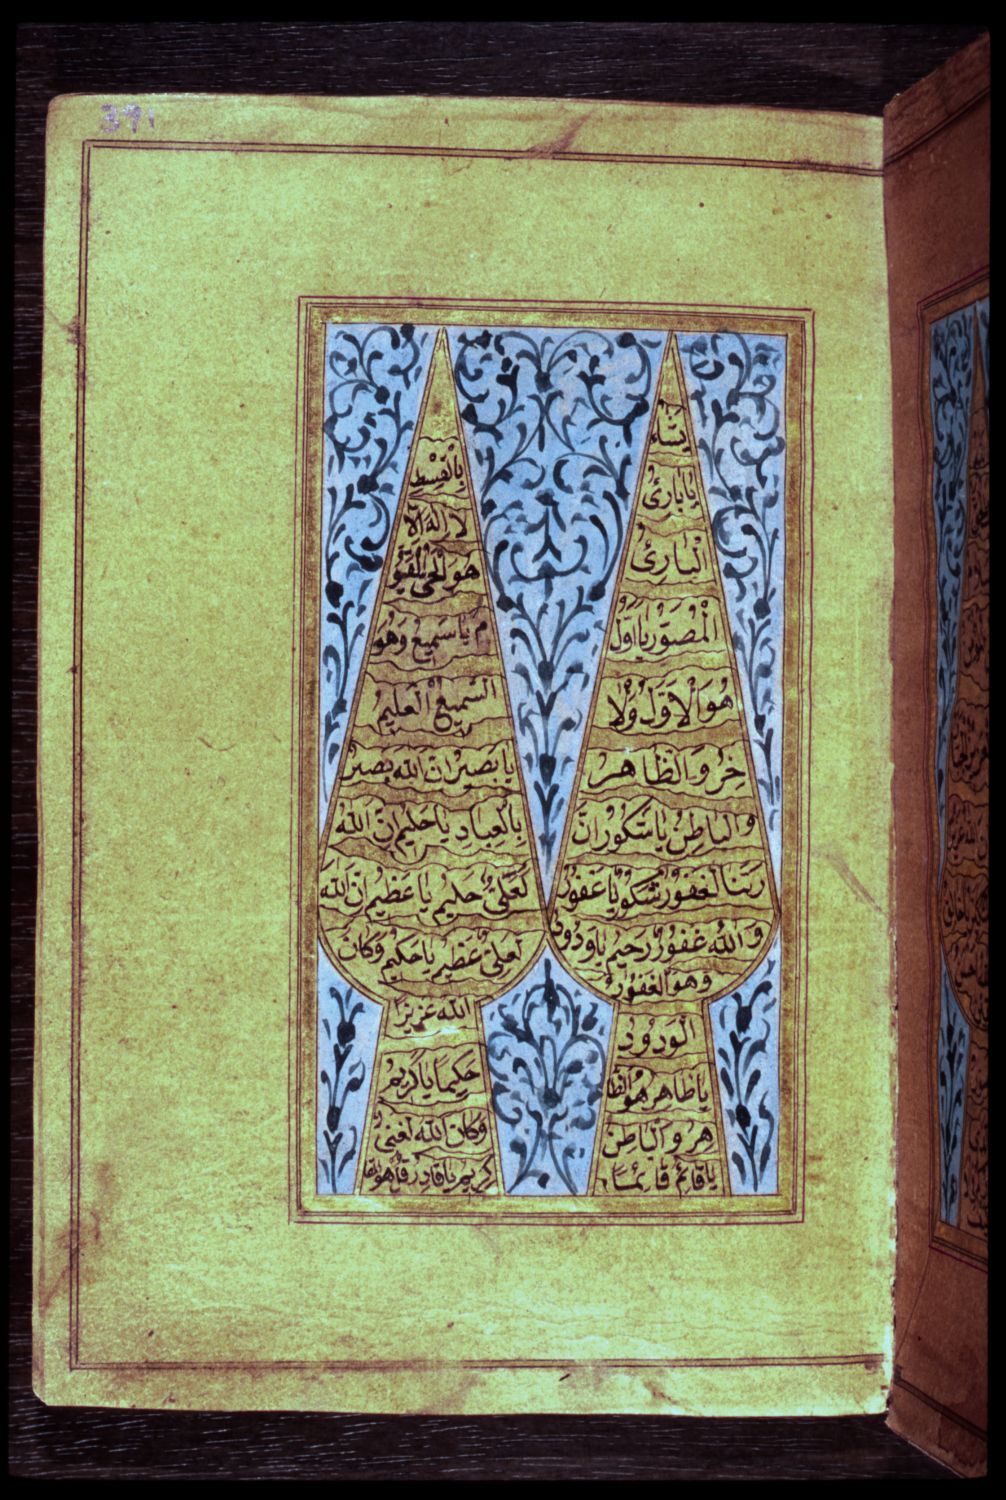 391
يشاء
يا بارئ
البارئ
المصور يا اول
هو الاول والا
خر والظاهر
والباطن يا شكور ان
ربنا لغفور شكور يا غفور
والله غفور رحيم يا ودود
وهو الغفور
الودود
يا ظاهر هو الظا
هر والباطن
يا قائم قائمًا
بالقسط
لا اله الا
هو الحي القيو
م يا سميع وهو
السميع العليم
يا بصير ان الله بصير
بالعباد يا حليم ان الله
لعلي حليم يا عظيم ان الله
لعلي عظيم يا حكيم وكان
الله عزيزا
حكيما يا كريم
وكان الله لغني
كريم يا قادر قل هو القا